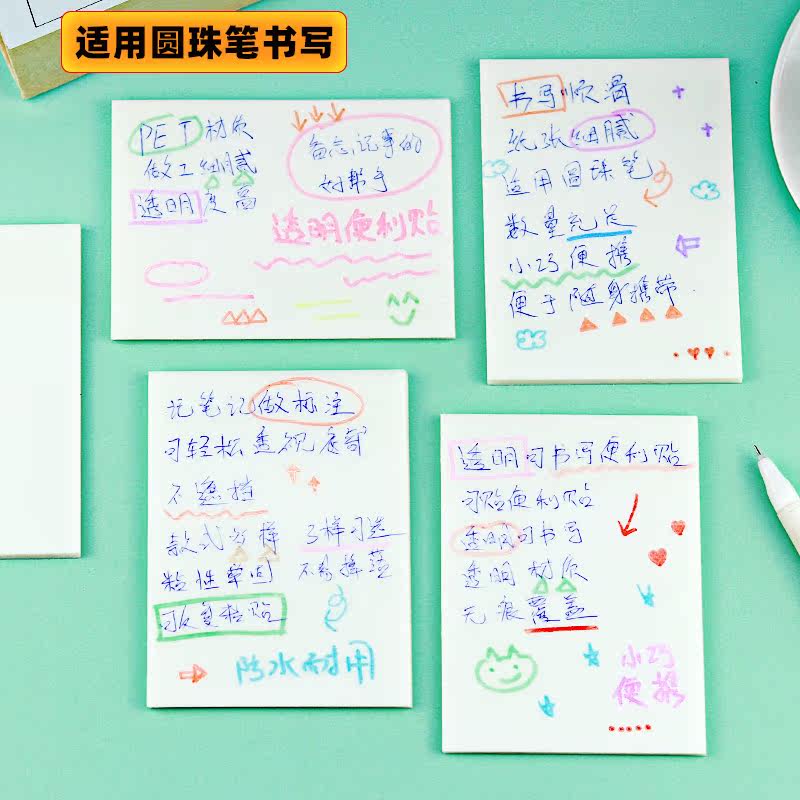 适用圆珠笔书写
PET材质
做工细腻
透明度高
备忘记事的
好帮手
透明便利贴
书写顺滑
纸张细腻
适用圆珠笔
数量充足
小巧便携
便于随身携带.
记笔记做标注
可轻松透视底部
不遮挡
款式多样 多样可选
粘性牢固 不易掉落
可反复粘贴
防水耐用
透明可书写便利贴
可贴便利贴
透明可书写
透明材质
无痕覆盖
小巧
便携